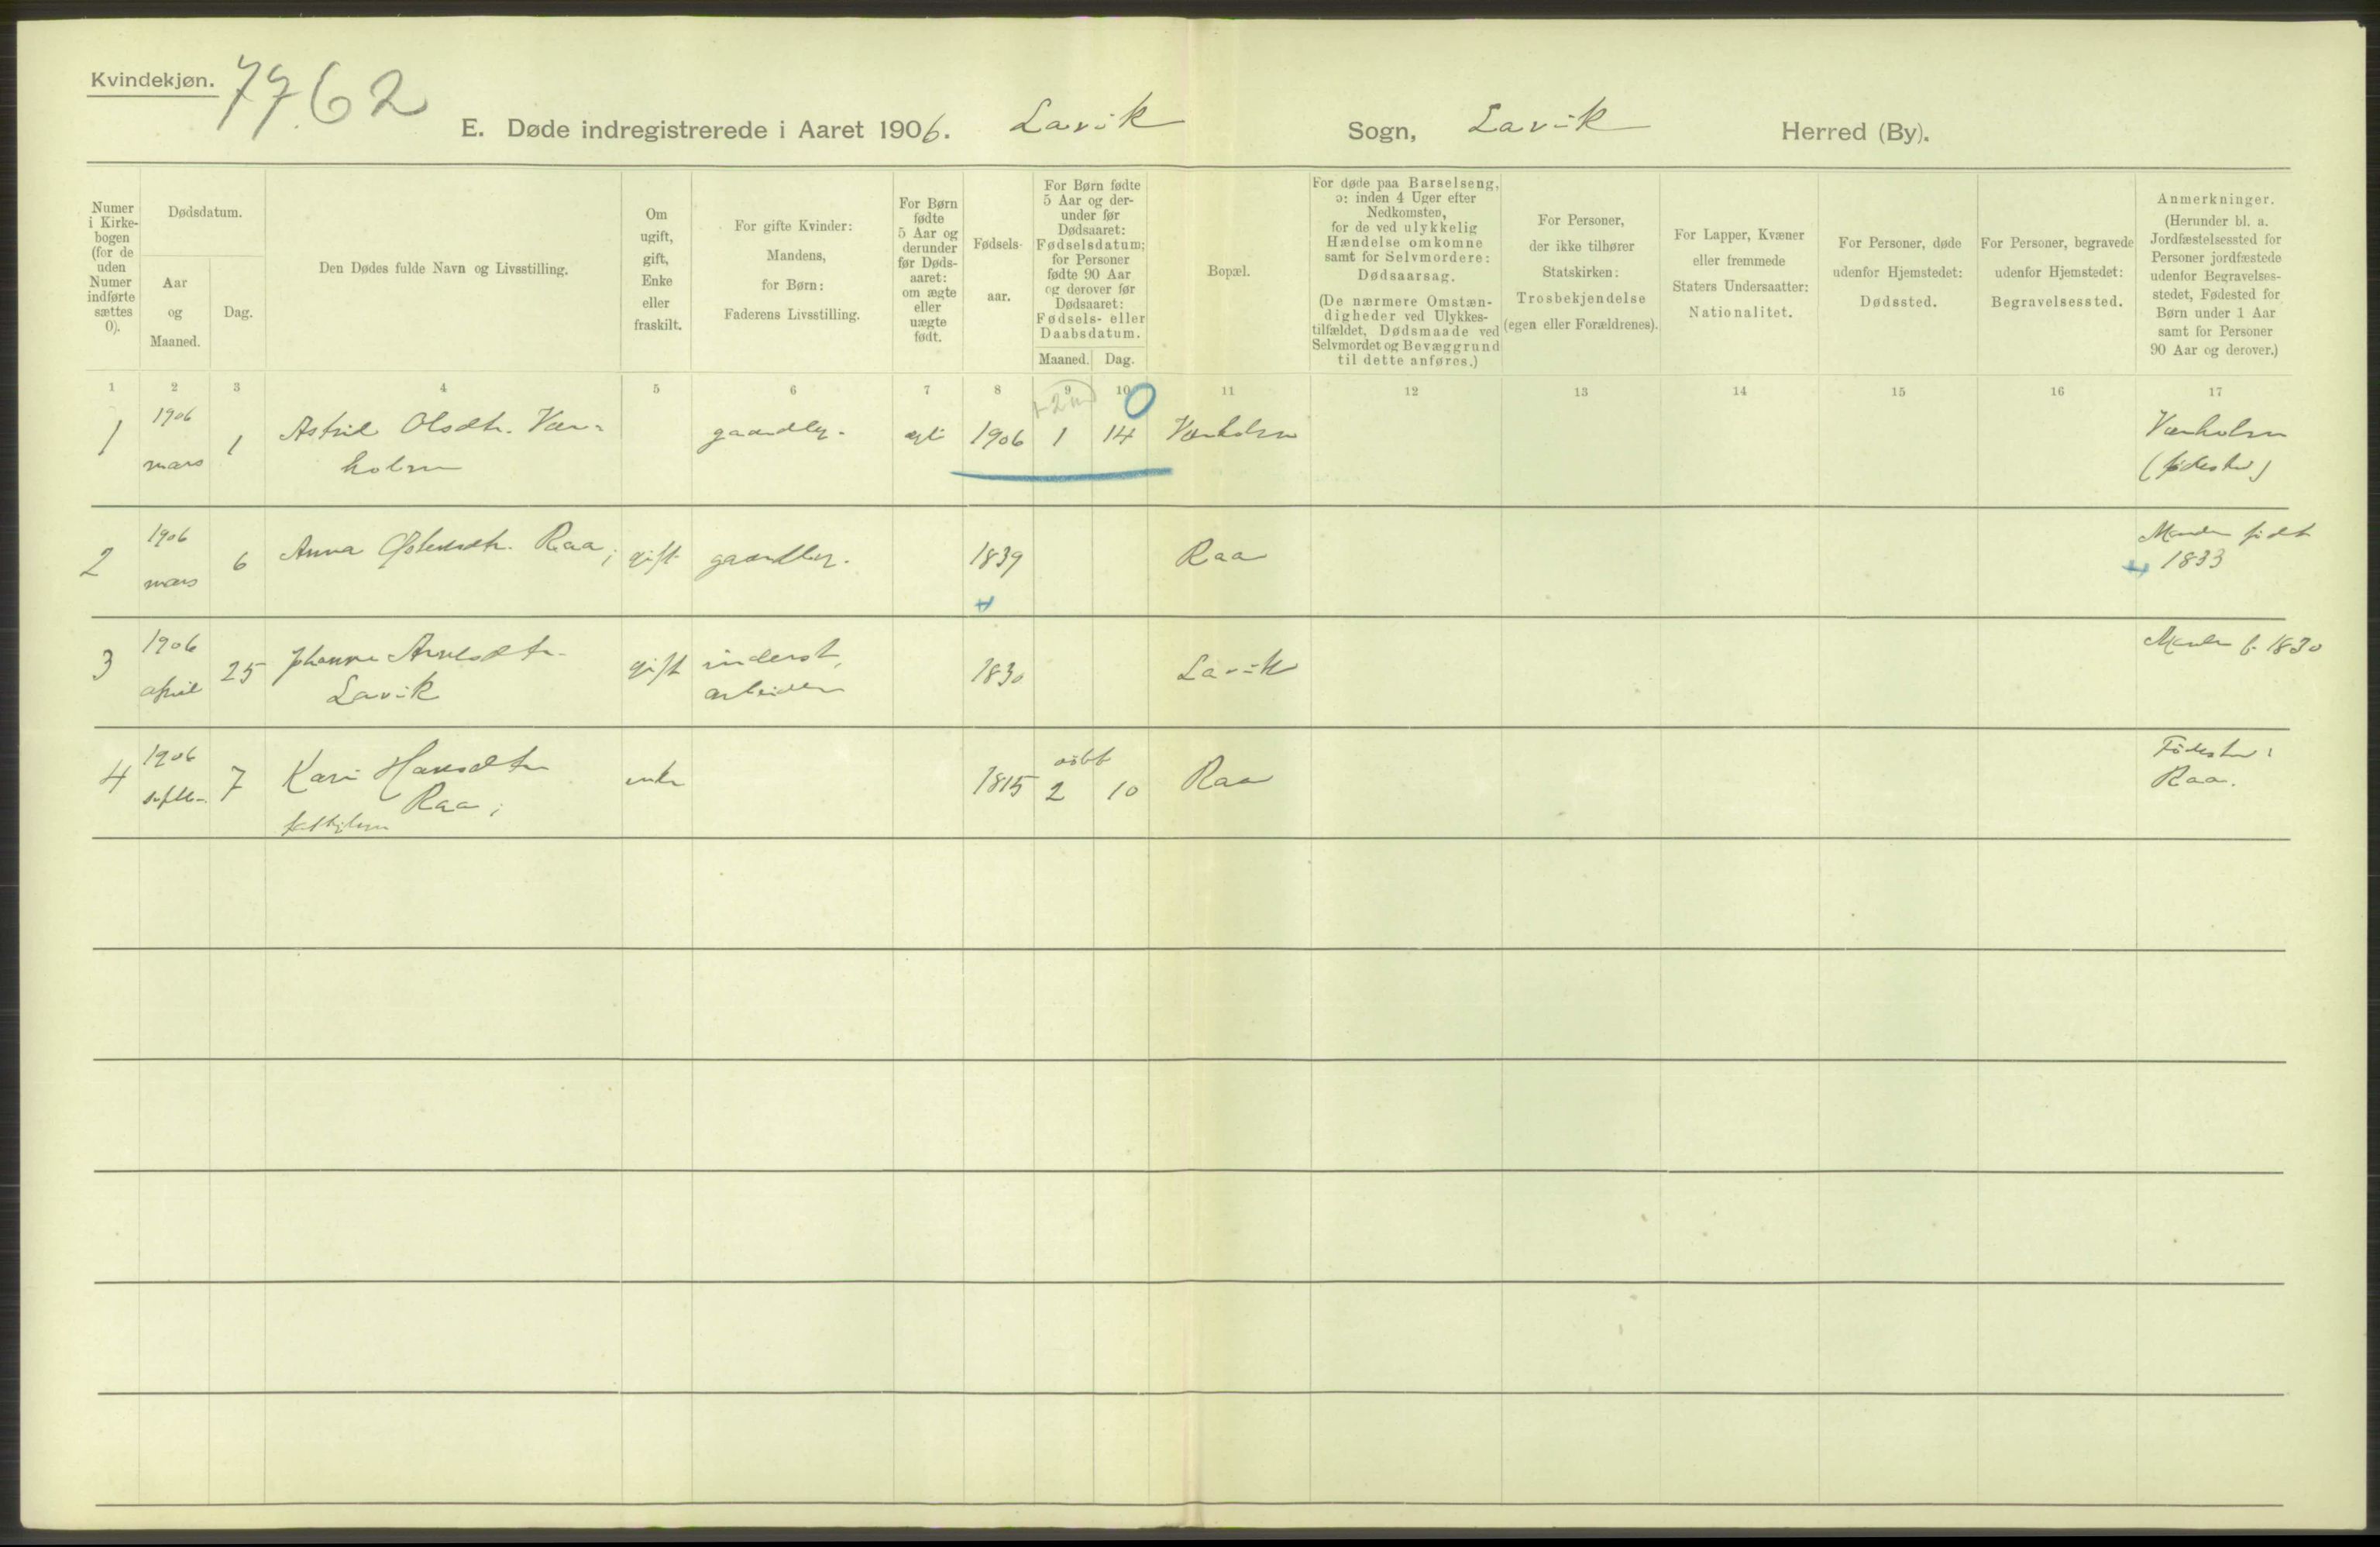 Kvindekjøn.
7762
E. Døde indregistrerede i Aaret 1906. Lavik Sogn, Lavik Herred (By).
Numer
i Kirke-
bogen
(for de
uden
Numer
indførte
sættes
0).
Dødsdatum.
Aar
og
Maaned.
Dag.
Den Dødes fulde Navn og Livsstilling.
Om
ugift,
gift,
Enke
eller
fraskilt.
For gifte Kvinder:
Mandens,
for Børn:
Faderens Livsstilling.
For Børn
fødte
5 Aar og
derunder
før Døds-
aaret:
om ægte
eller
uægte
født.
Fødsels-
aar.
For Børn fødte
5 Aar og der-
under før
Dødsaaret:
Fødselsdatum;
for Personer
fødte 90 Aar
og derover før
Dødsaaret:
Fødsels- eller
Daabsdatum.
Maaned. Dag.
Bopæl.
For døde paa Barselseng,
ɔ: inden 4 Uger efter
Nedkomsten,
for de ved ulykkelig
Hændelse omkomne
samt for Selvmordere:
Dødsaarsag.
(De nærmere Omstæn-
digheder ved Ulykkes-
tilfældet, Dødsmaade ved
Selvmordet og Bevæggrund
til dette anføres.)
For Personer,
der ikke tilhører
Statskirken:
Trosbekjendelse
(egen eller Forældrenes).
For Lapper, Kvæner
eller fremmede
Staters Undersaatter:
Nationalitet.
For Personer, døde
udenfor Hjemstedet:
Dødssted.
For Personer, begravede
udenfor Hjemstedet:
Begravelsessted.
Anmerkninger.
(Herunder bl. a.
Jordfæstelsessted for
Personer jordfæstede
udenfor Begravelses-
stedet, Fødested for
Børn under 1 Aar
samt for Personer
90 Aar og derover.)
1 2 3 4 5 6 7 8 9 10 11 12 13 14 15 16 17
+2m 0
1 1906 mars 1 Astrid Olsdtr. Vær-
holm
gaardbr. egte 1906 1 14 Værholm
Værholm
(fødested)
2 1906 mars 6 Anna Raa; gift gaardbr. 1839 Raa
Manden født
1833
3 1906 april 25 Johanne Arnesdtr.
Lavik
gift inderst,
arbeider
1830 Lavik Manden f. 1830
4 1906 septbr. 7 Kari Hansdtr
Raa;
enke 1815 døbt
2 10 Raa
Fødested:
Raa.